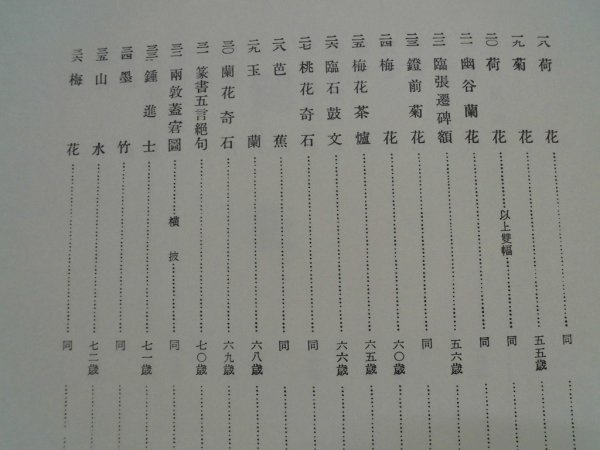 一八 荷花……同
一九 菊花……五五歳
二〇 荷花……以上雙幅……同
二一 幽谷蘭花……同
二二 臨張遷碑額……五六歳
二三 鐙前菊花……同
二四 梅花……六〇歳
二五 梅花茶爐……六五歳
二六 臨石鼓文……六六歳
二七 桃花奇石……同
二八 芭蕉……同
二九 玉蘭……六八歳
三〇 蘭花奇石……六九歳
三一 篆書五言絕句……七〇歳
三二 兩敦蓋宧圖……横披……同
三三 鍾進士……七一歳
三四 墨竹……同
三五 山水……七二歳
三六 梅花……同